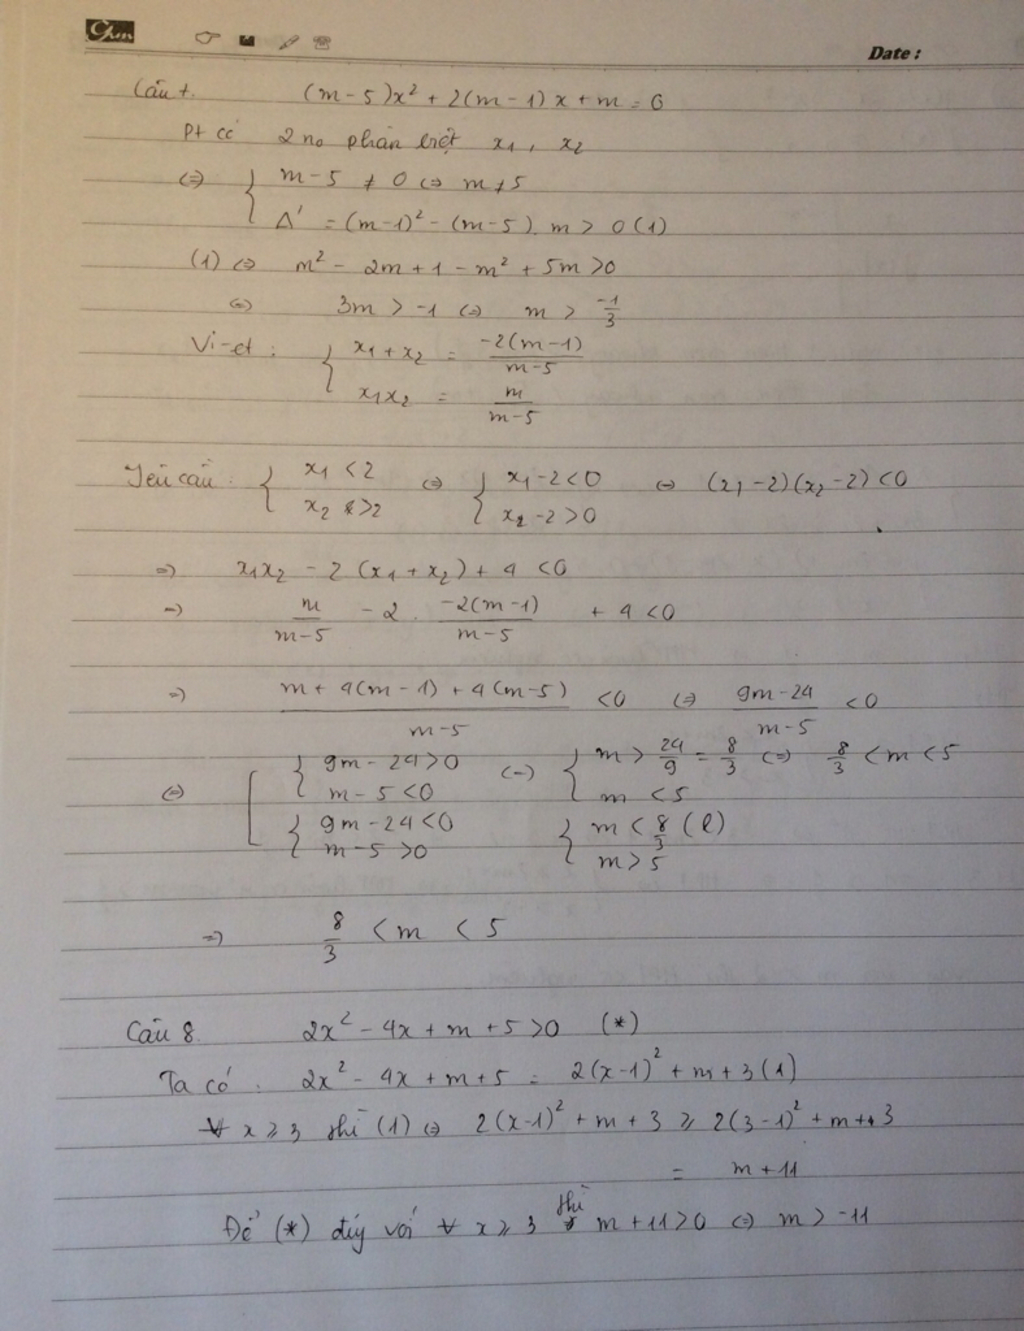 Date :
Câu 7. (m-5)x² + 2(m-1)x + m = 0
Pt có 2 no phân biệt x₁, x₂
⇔ { m-5 ≠ 0 ⇔ m ≠ 5
Δ' = (m-1)² - (m-5).m > 0 (1)
(1) ⇔ m² - 2m + 1 - m² + 5m > 0
⇔ 3m > -1 ⇔ m > -1/3
Vi-et : { x₁ + x₂ = -2(m-1)/(m-5)
x₁x₂ = m/(m-5)
Yêu cầu : { x₁ < 2 ⇔ { x₁ - 2 < 0 ⇔ (x₁-2)(x₂-2) < 0
x₂ > 2 x₂ - 2 > 0
⇒ x₁x₂ - 2(x₁ + x₂) + 4 < 0
⇒ m/(m-5) - 2 . -2(m-1)/(m-5) + 4 < 0
⇒ (m + 4(m-1) + 4(m-5))/(m-5) < 0 ⇔ (9m-24)/(m-5) < 0
⇔ [ { 9m - 24 > 0 ⇔ { m > 24/9 = 8/3 ⇔ 8/3 < m < 5
m - 5 < 0 m < 5
{ 9m - 24 < 0 { m < 8/3 (l)
m - 5 > 0 m > 5
⇒ 8/3 < m < 5
Câu 8. 2x² - 4x + m + 5 > 0 (*)
Ta có : 2x² - 4x + m + 5 = 2(x-1)² + m + 3 (1)
∀ x ≥ 3 thì (1) ⇔ 2(x-1)² + m + 3 ≥ 2(3-1)² + m + 3
= m + 11
Để (*) đúng với ∀ x ≥ 3 thì m + 11 > 0 ⇔ m > -11